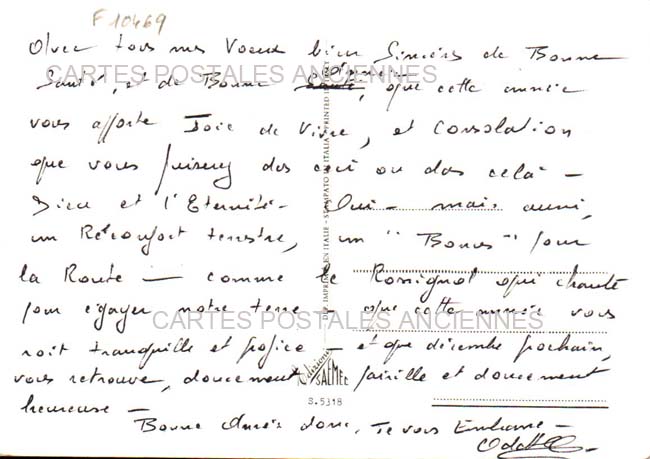 F 10469
Avec tous mes Voeux bien Sincères de Bonne
CARTES POSTALES ANCIENNES
Santé, et de Bonne Année, que cette année
vous apporte Joie de Vivre, et Consolation
que vous puisez ds ceci ou ds cela -
Dieu et l'Eternité - Oui - mais aussi,
un Réconfort terrestre, un "Bonus" pour
la Route - comme le Rossignol qui chante
pour égayer notre terre, que cette année vous
CARTES POSTALES ANCIENNES
soit tranquille et - et que décembre prochain,
vous retrouve, doucement paisible et doucement
heureuse -
Bonne Année donc, Je vous Embrasse -
Odette
IMPRIMÉ EN ITALIE - STAMPATO IN ITALIA - PRINTED IN
Edizioni
SAEMEC
S. 5318